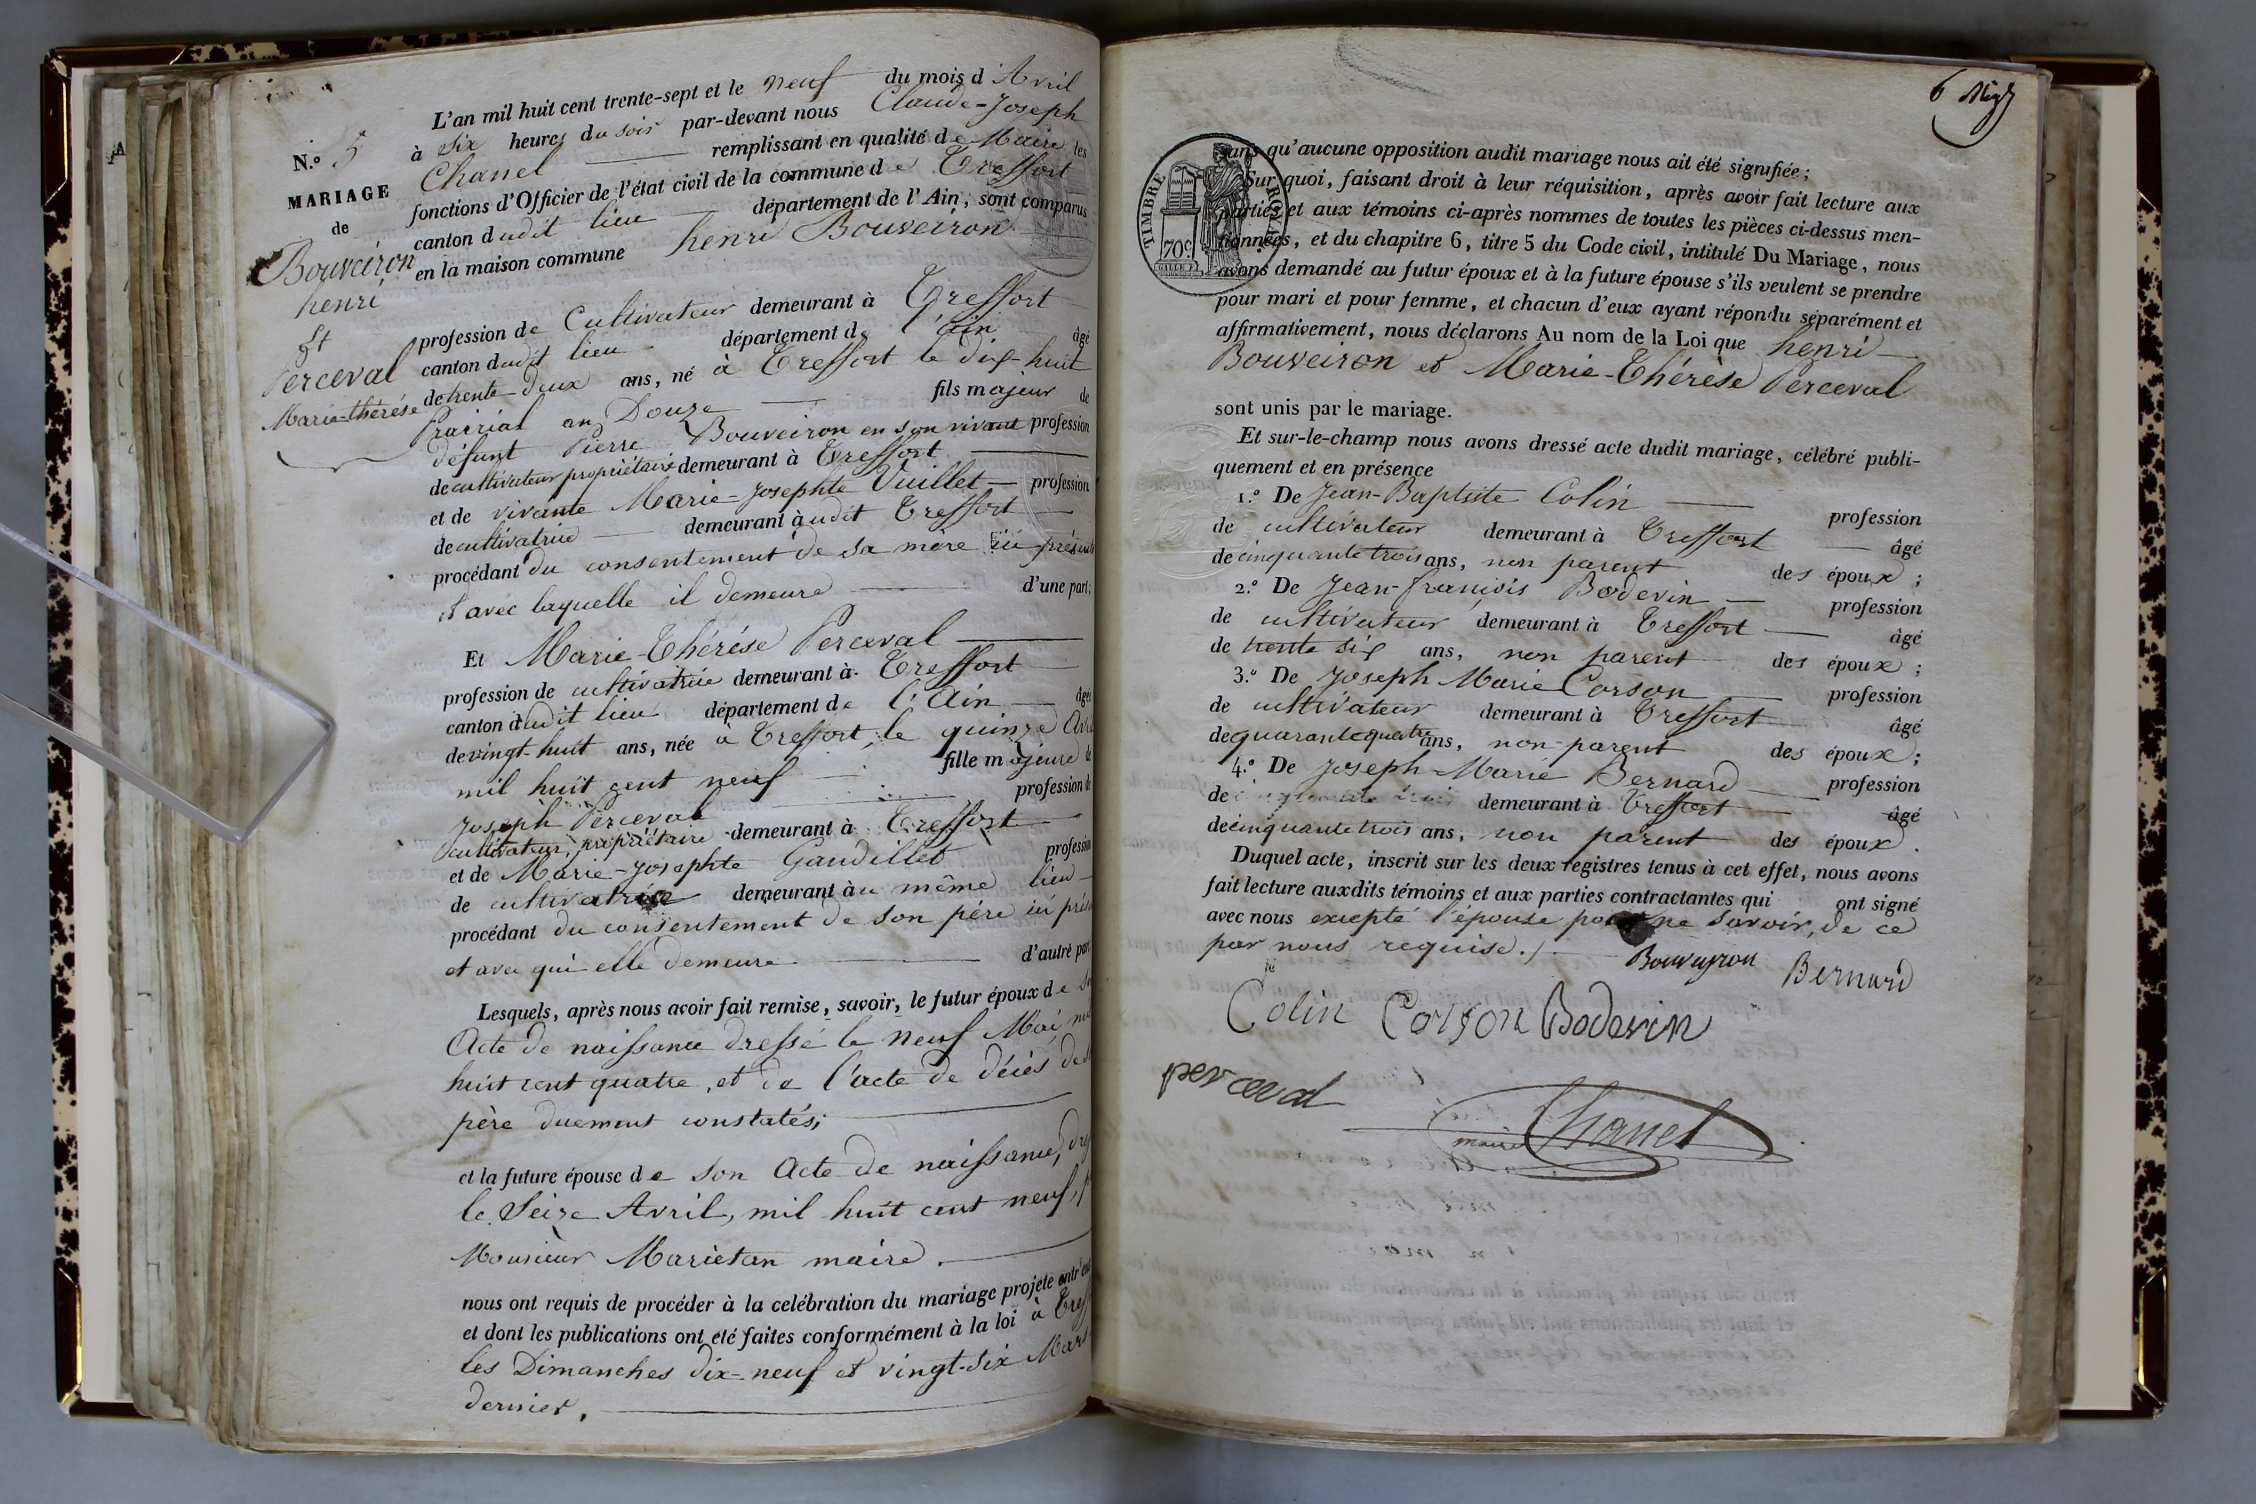 L'an mil huit cent trente-sept et le neuf du mois d'Avril
N.° 5 à six heures du soir par-devant nous Claude-Joseph
Chanel remplissant en qualité de Maire les
MARIAGE fonctions d'Officier de l'état civil de la commune de Treffort
de canton dudit lieu département de l'Ain, sont comparus
Bouveiron en la maison commune henri Bouveiron
henri
Et profession de Cultivateur demeurant à Treffort
Perceval canton dudit lieu département de l'ain âgé
Marie-thérése de trente-deux ans, né à Treffort le dix-huit
Prairial an Douze fils majeur de
défunt Pierre Bouveiron en son vivant profession
de cultivateur propriétaire demeurant à Treffort
et de vivante Marie-Josephte Vuillet profession
de cultivatrice demeurant àudit Treffort
procédant du consentement de sa mère ici présente
et avec laquelle il demeure d'une part;
Et Marie-Thérése Perceval
profession de cultivatrice demeurant à Treffort
canton dudit lieu département de l'Ain âgée
de vingt-huit ans, née à Treffort, le quinze
mil huit cent neuf fille majeure de
Joseph Perceval profession de
cultivateur, propriétaire demeurant à Treffort
et de Marie-Josephte Gaudillet profession
de cultivatrice demeurant àu même lieu
procédant du consentement de son père ici
et avec qui elle demeure d'autre part
Lesquels, après nous avoir fait remise, savoir, le futur époux de
Acte de naissance dressé le neuf Mai
huit cent quatre, et de l'acte de décès de
père duement constatés;
et la future épouse de son Acte de naissance,
le Seize Avril, mil huit cent neuf,
Monsieur Mariètan maire.
nous ont requis de procéder à la celébration du mariage projeté
et dont les publications ont été faites conformément à la loi à
les Dimanches dix-neuf et vingt-six Mars
dernier.
6
TIMBRE ROYAL
70c.
sans qu'aucune opposition audit mariage nous ait été signifiée;
Sur quoi, faisant droit à leur réquisition, après avoir fait lecture aux
parties et aux témoins ci-après nommes de toutes les pièces ci-dessus men-
tionnées, et du chapitre 6, titre 5 du Code civil, intitulé Du Mariage, nous
avons demandé au futur époux et à la future épouse s'ils veulent se prendre
pour mari et pour femme, et chacun d'eux ayant répondu séparément et
affirmativement, nous déclarons Au nom de la Loi que henri
Bouveiron et Marie-Thérèse Perceval
sont unis par le mariage.
Et sur-le-champ nous avons dressé acte dudit mariage, célébré publi-
quement et en présence
1.° De Jean-Baptiste Colin profession
de cultivateur demeurant à Treffort âgé
de cinquante trois ans, non parent des époux;
2.° De Jean-françois Bodevin profession
de cultivateur demeurant à Treffort âgé
de trente six ans, non parent des époux;
3.° De Joseph Marie Corson profession
de cultivateur demeurant à Treffort âgé
de quarante quatre ans, non parent des époux;
4.° De Joseph-Marie Bernard profession
de demeurant à Treffort âgé
de cinquante trois ans, non parent des époux.
Duquel acte, inscrit sur les deux registres tenus à cet effet, nous avons
fait lecture auxdits témoins et aux parties contractantes qui ont signé
avec nous excepté l'épouse pour ne savoir, de ce
par nous requise./.
Bouveyron Bernard
Colin Corson Bodevin
perceval
maire Chanel